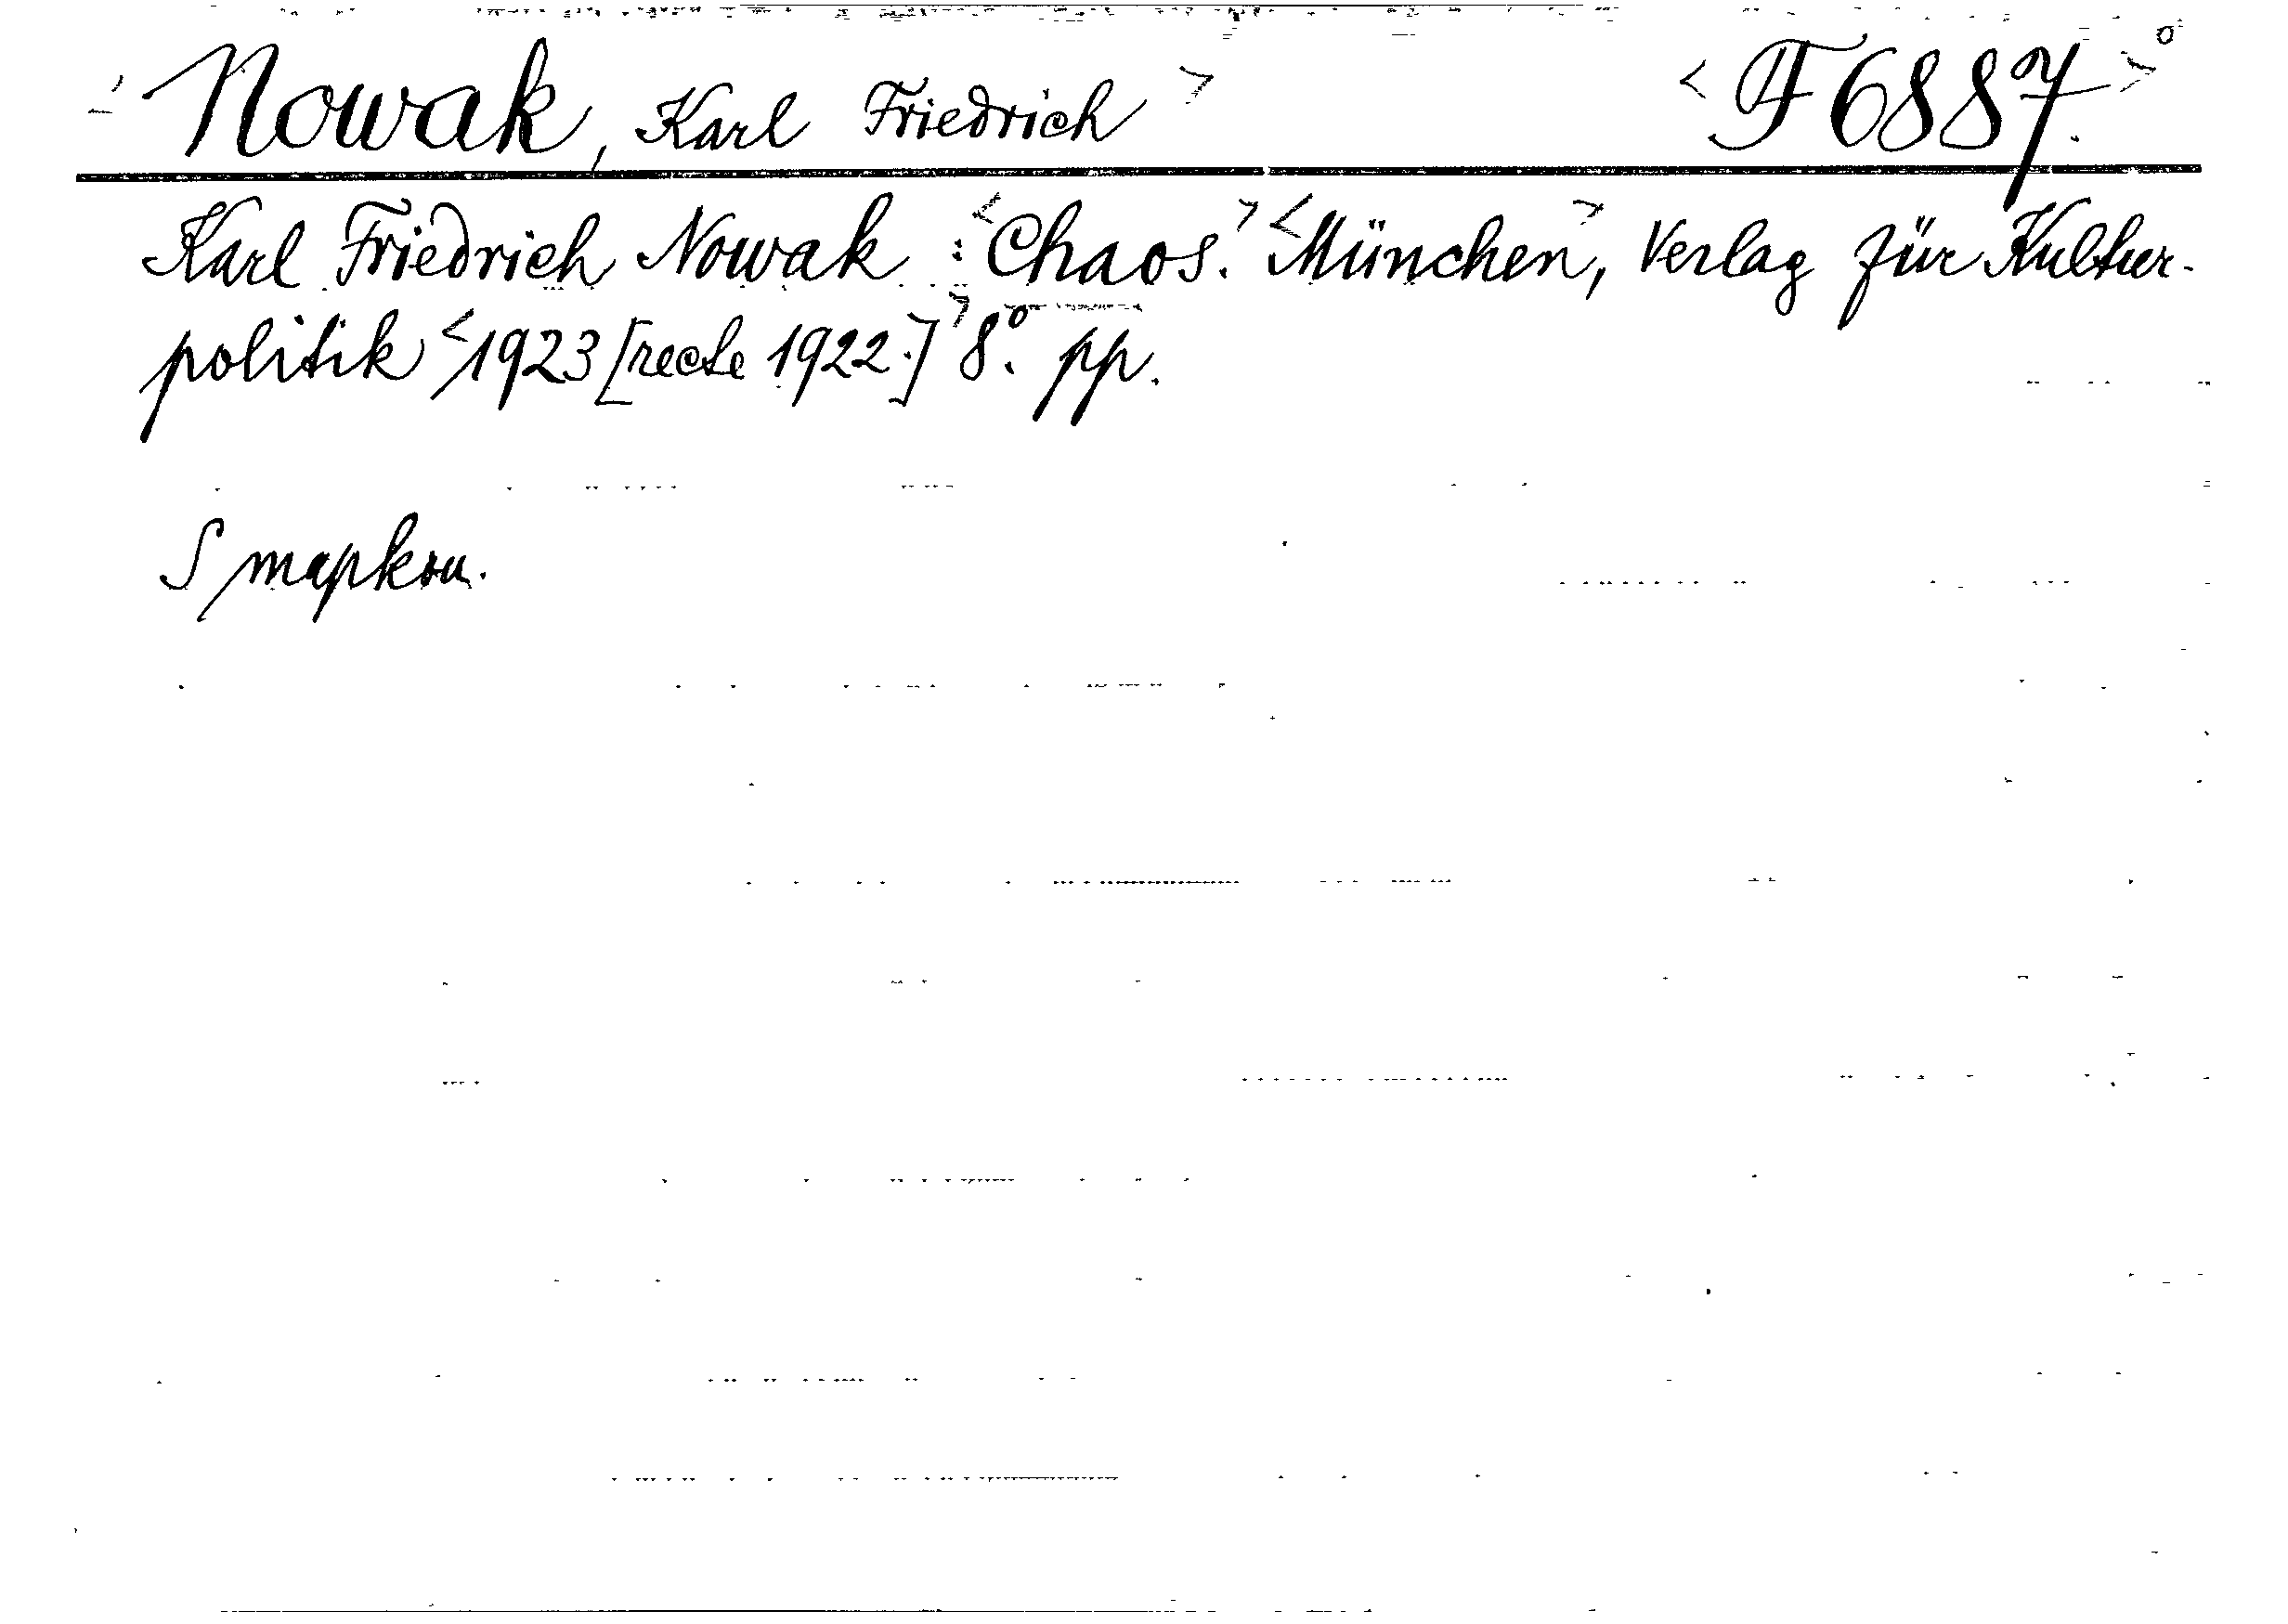 <Nowak, Karl Friedrich> <F 6887.>°
Karl Friedrich Nowak : <Chaos.> <München>, Verlag für Kultur-
politik <1923 [recte 1922.]> 8°. pp.